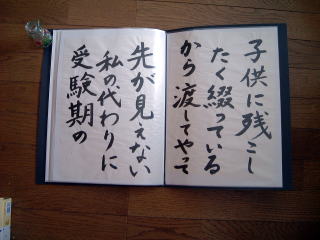 子供に残こし
たく綴っている
から渡してやって
先が見えない
私の代わりに
受験期の